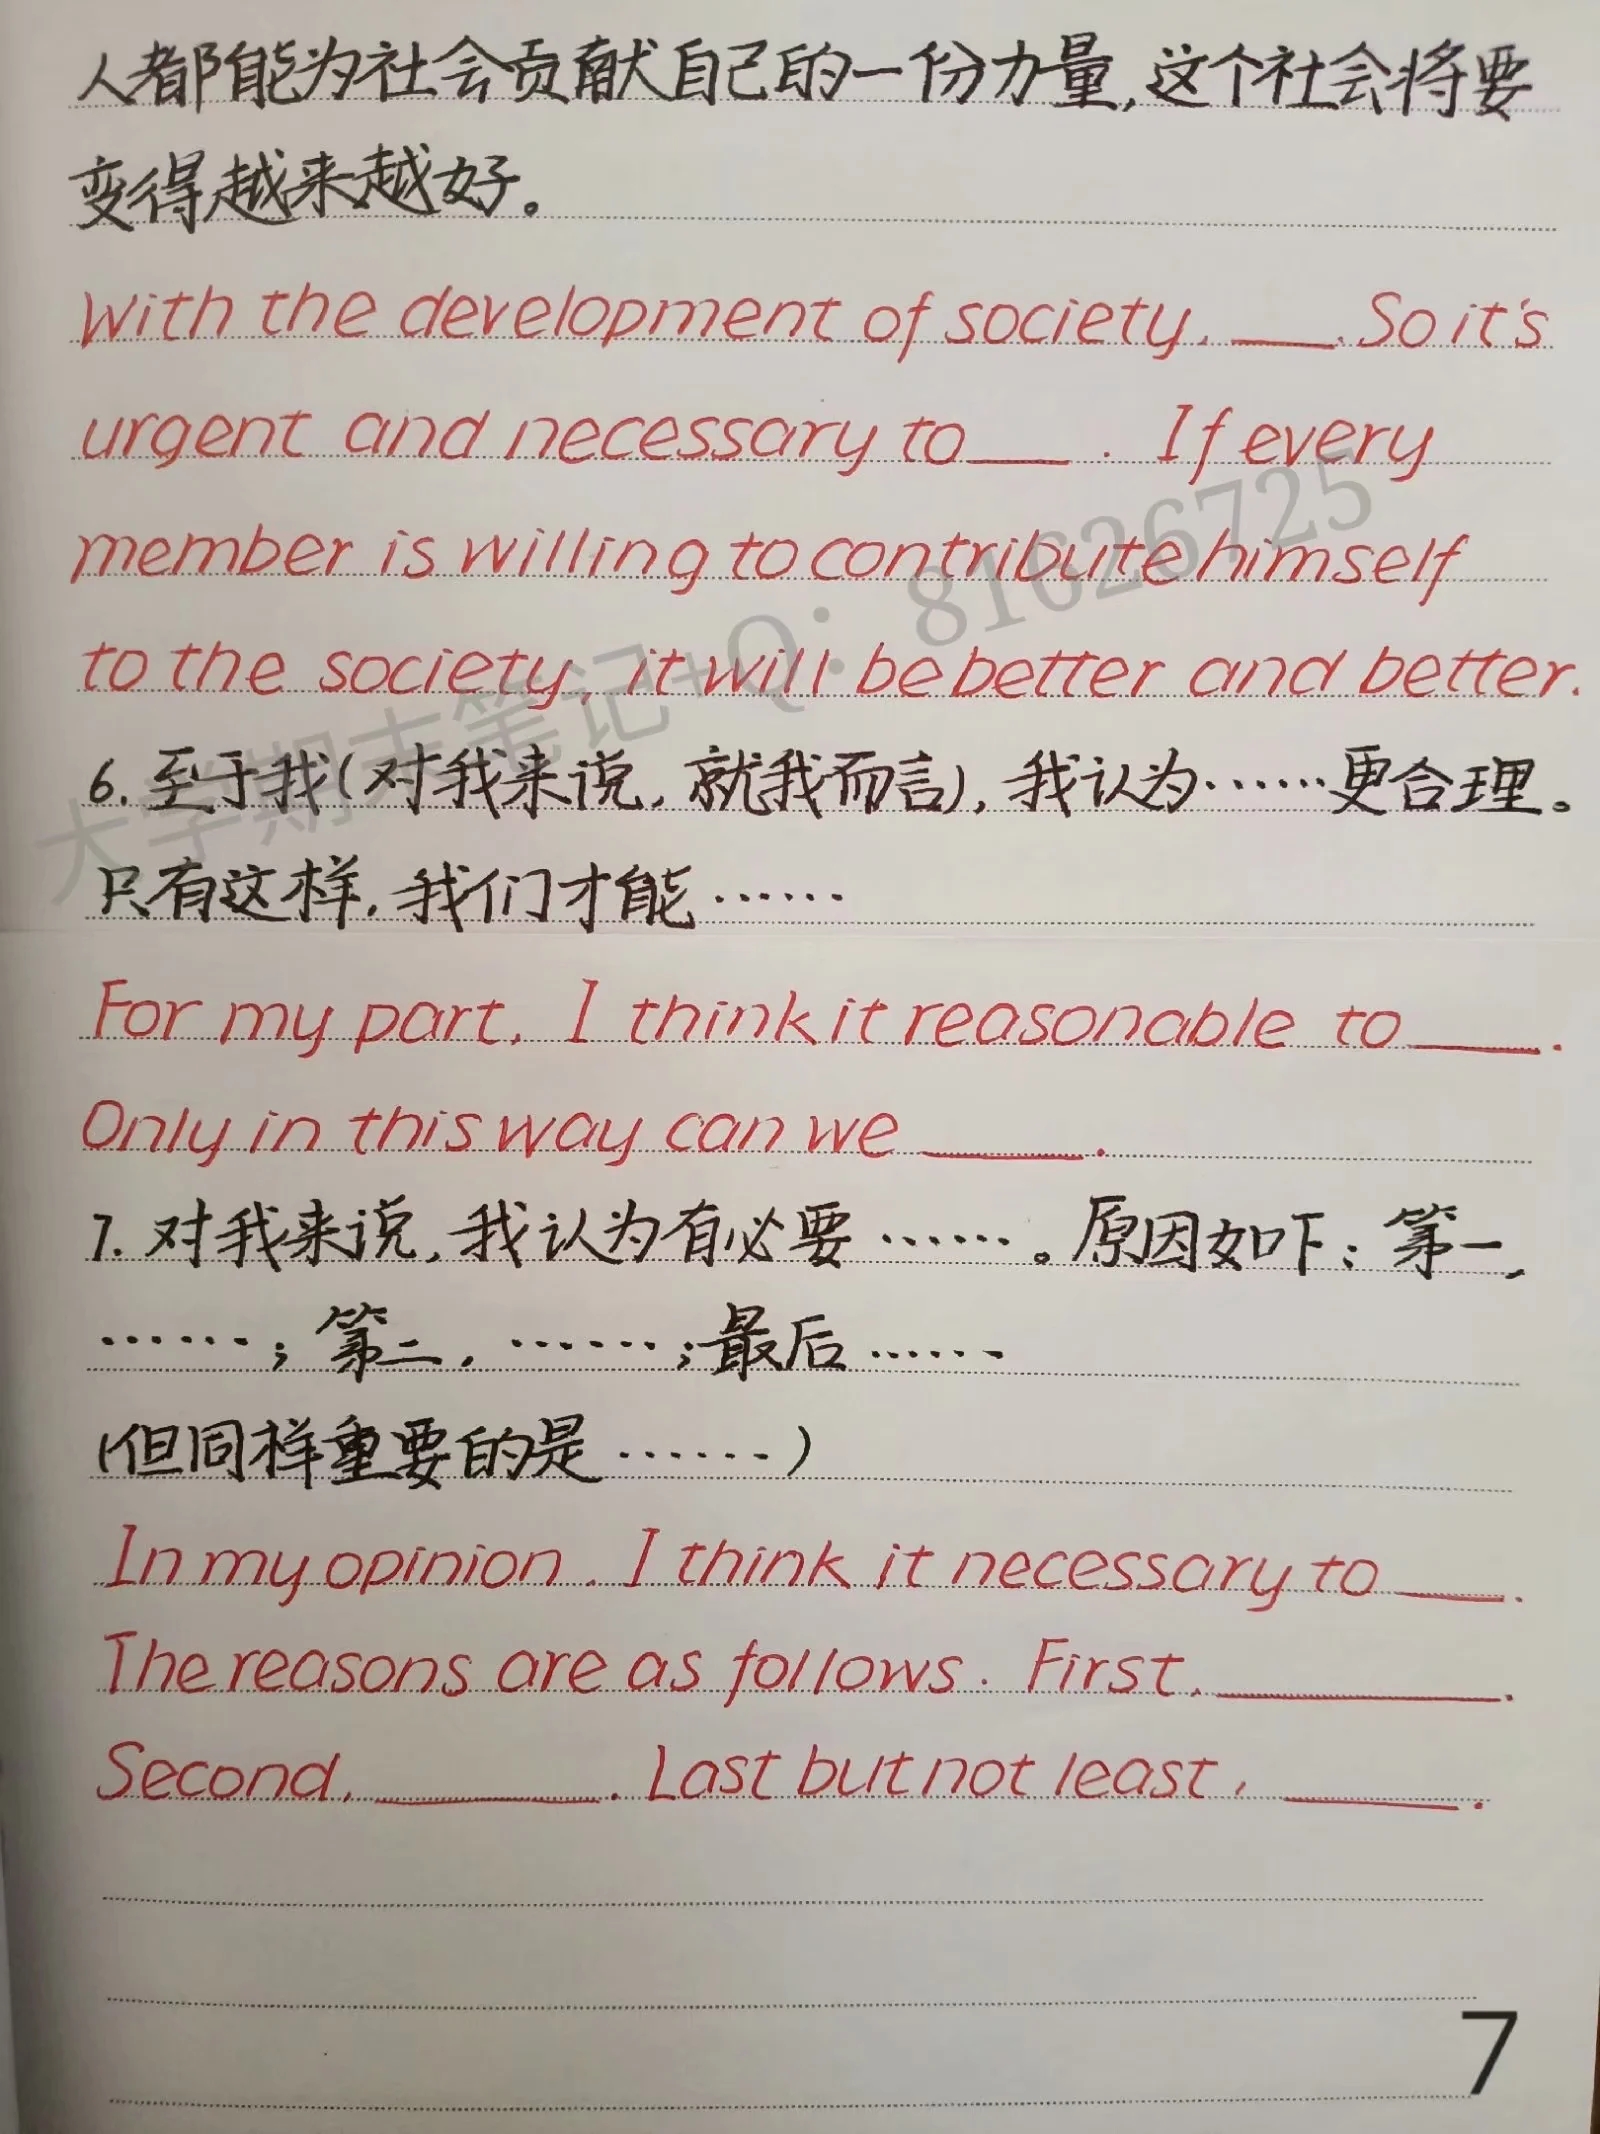 人都能为社会贡献自己的一份力量,这个社会将要
变得越来越好。
With the development of society, ___. So it's
urgent and necessary to ___. If every
member is willing to contribute himself
to the society, it will be better and better.
大学期末笔记+Q: 81626725
6. 至于我(对我来说,就我而言),我认为……更合理。
只有这样,我们才能……
For my part, I think it reasonable to ____.
Only in this way can we _____.
7. 对我来说,我认为有必要……。原因如下:第一,
……;第二,……;最后……
(但同样重要的是……)
In my opinion, I think it necessary to ___.
The reasons are as follows. First, ________.
Second, ______. Last but not least, _____.
7